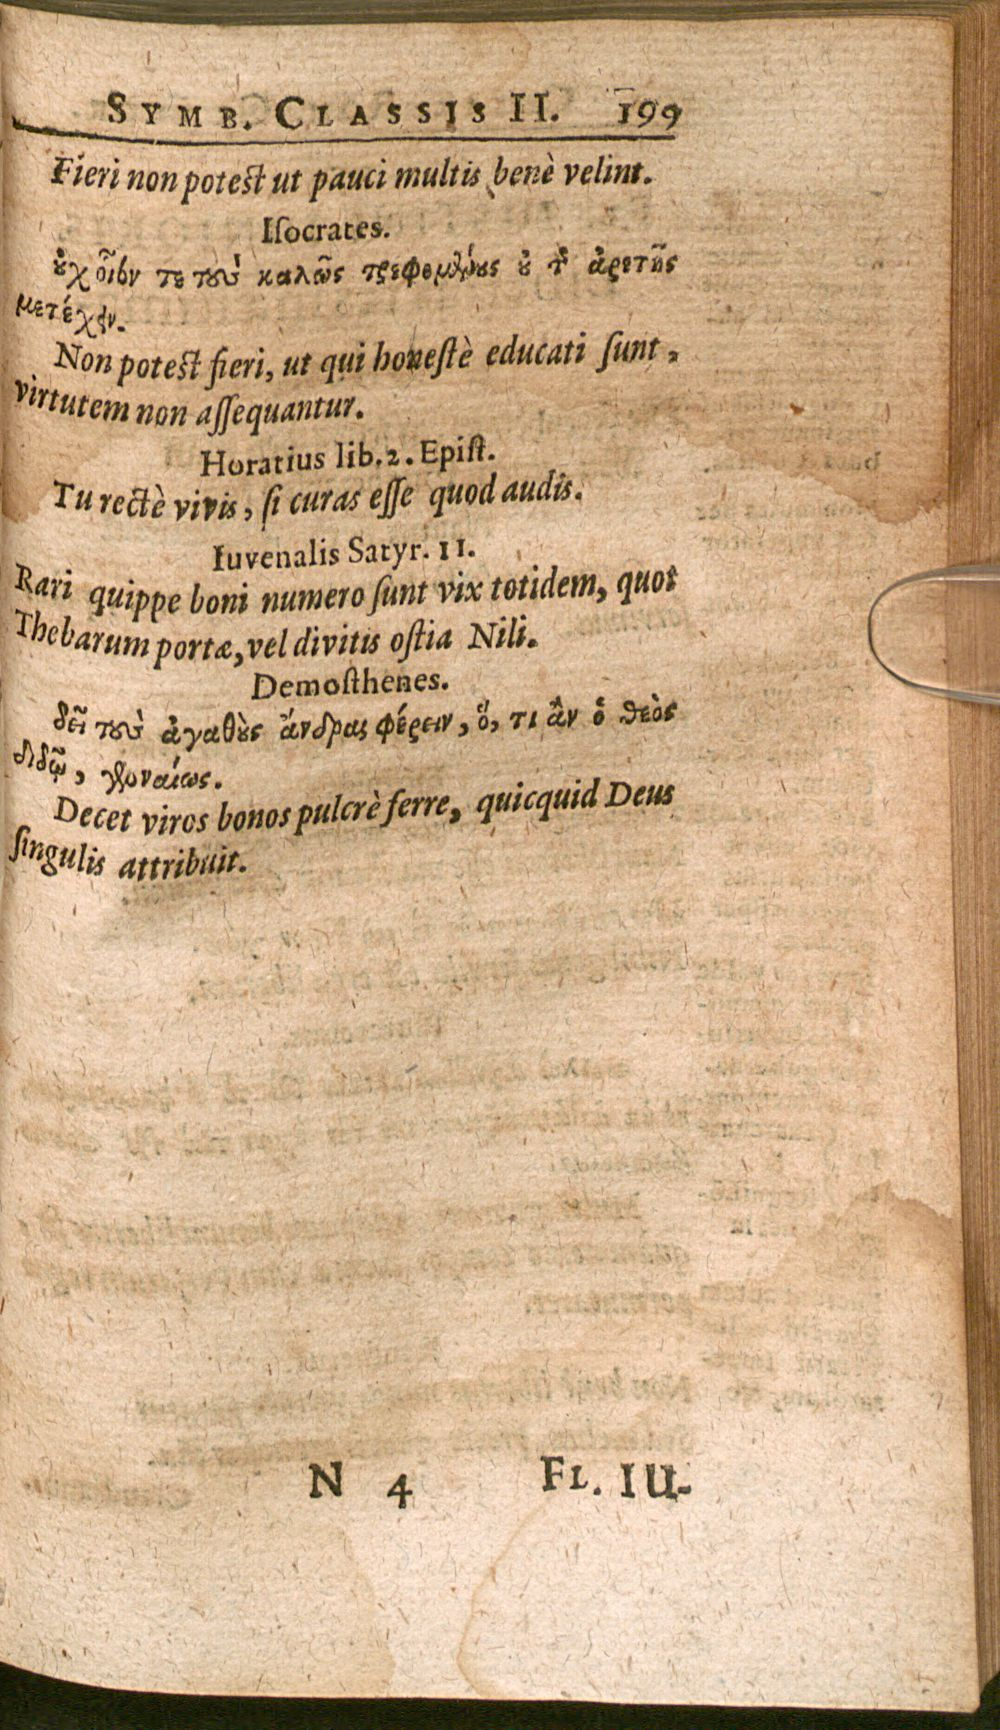 SYMB. CLASSIS II. 199
Fieri non potest ut pauci multis benè velint.
Iſocrates.
οὐχ οἷόν τε τοὺς καλῶς τρεφομένους οὐ τῆς ἀρετῆς
μετέχειν.
Non potest fieri, ut qui honeſtè educati ſunt,
virtutem non aſſequantur.
Horatius lib. 2. Epiſt.
Tu rectè vivis, ſi curas eſſe quod audis.
Iuvenalis Satyr. 11.
Rari quippe boni numero ſunt vix totidem, quot
Thebarum portæ, vel divitis oſtia Nili.
Demoſthenes.
δεῖ τοὺς ἀγαθοὺς ἄνδρας φέρειν, ὅ, τι ἂν ὁ θεὸς
διδῷ, γενναίως.
Decet viros bonos pulcrè ferre, quicquid Deus
ſingulis attribuit.
N 4 FL. IU-